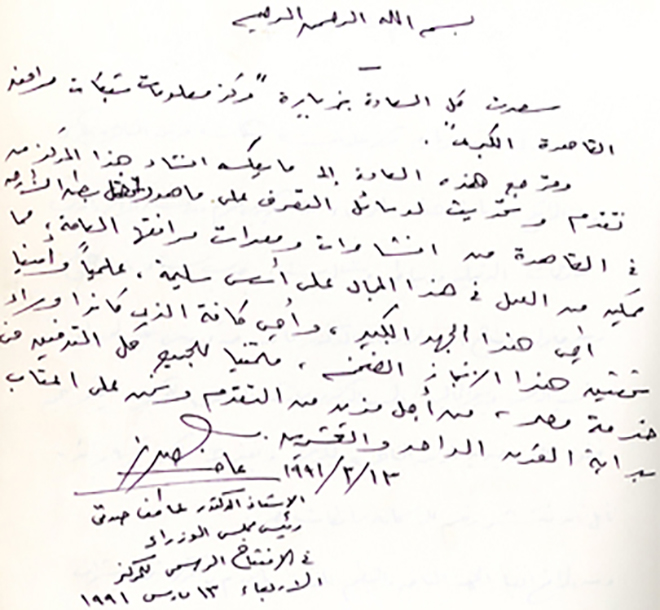 بسم الله الرحمن الرحيم
سعدت كل السعادة بزيارة "مركز معلومات شبكات مرافق
القاهرة الكبرى".
ومرجع هذه السعادة إلى ما يعكسه انشاء هذا المركز من
تقدم وتحديث لوسائل التعرف على ما هو تحت سطح الأرض
في القاهرة من انشاءات ومعدات مرافقها العامة، مما
يمكن من العمل في هذا المجال على أسس سليمة، علمياً وأمنياً
أحيي هذا الجهد الكبير، وأحيي كافة الذين كانوا وراء
تحقيق هذا الإنجاز الضخم، متمنيا للجميع كل التوفيق في
خدمة مصر، من أجل مزيد من التقدم ونحن على أعتاب
بداية القرن الواحد والعشرين.
عاطف صدقي
١٩٩١/٣/١٣
الأستاذ الدكتور عاطف صدقي
رئيس مجلس الوزراء
في الافتتاح الرسمي للمركز
الاربعاء ١٣ مارس ١٩٩١